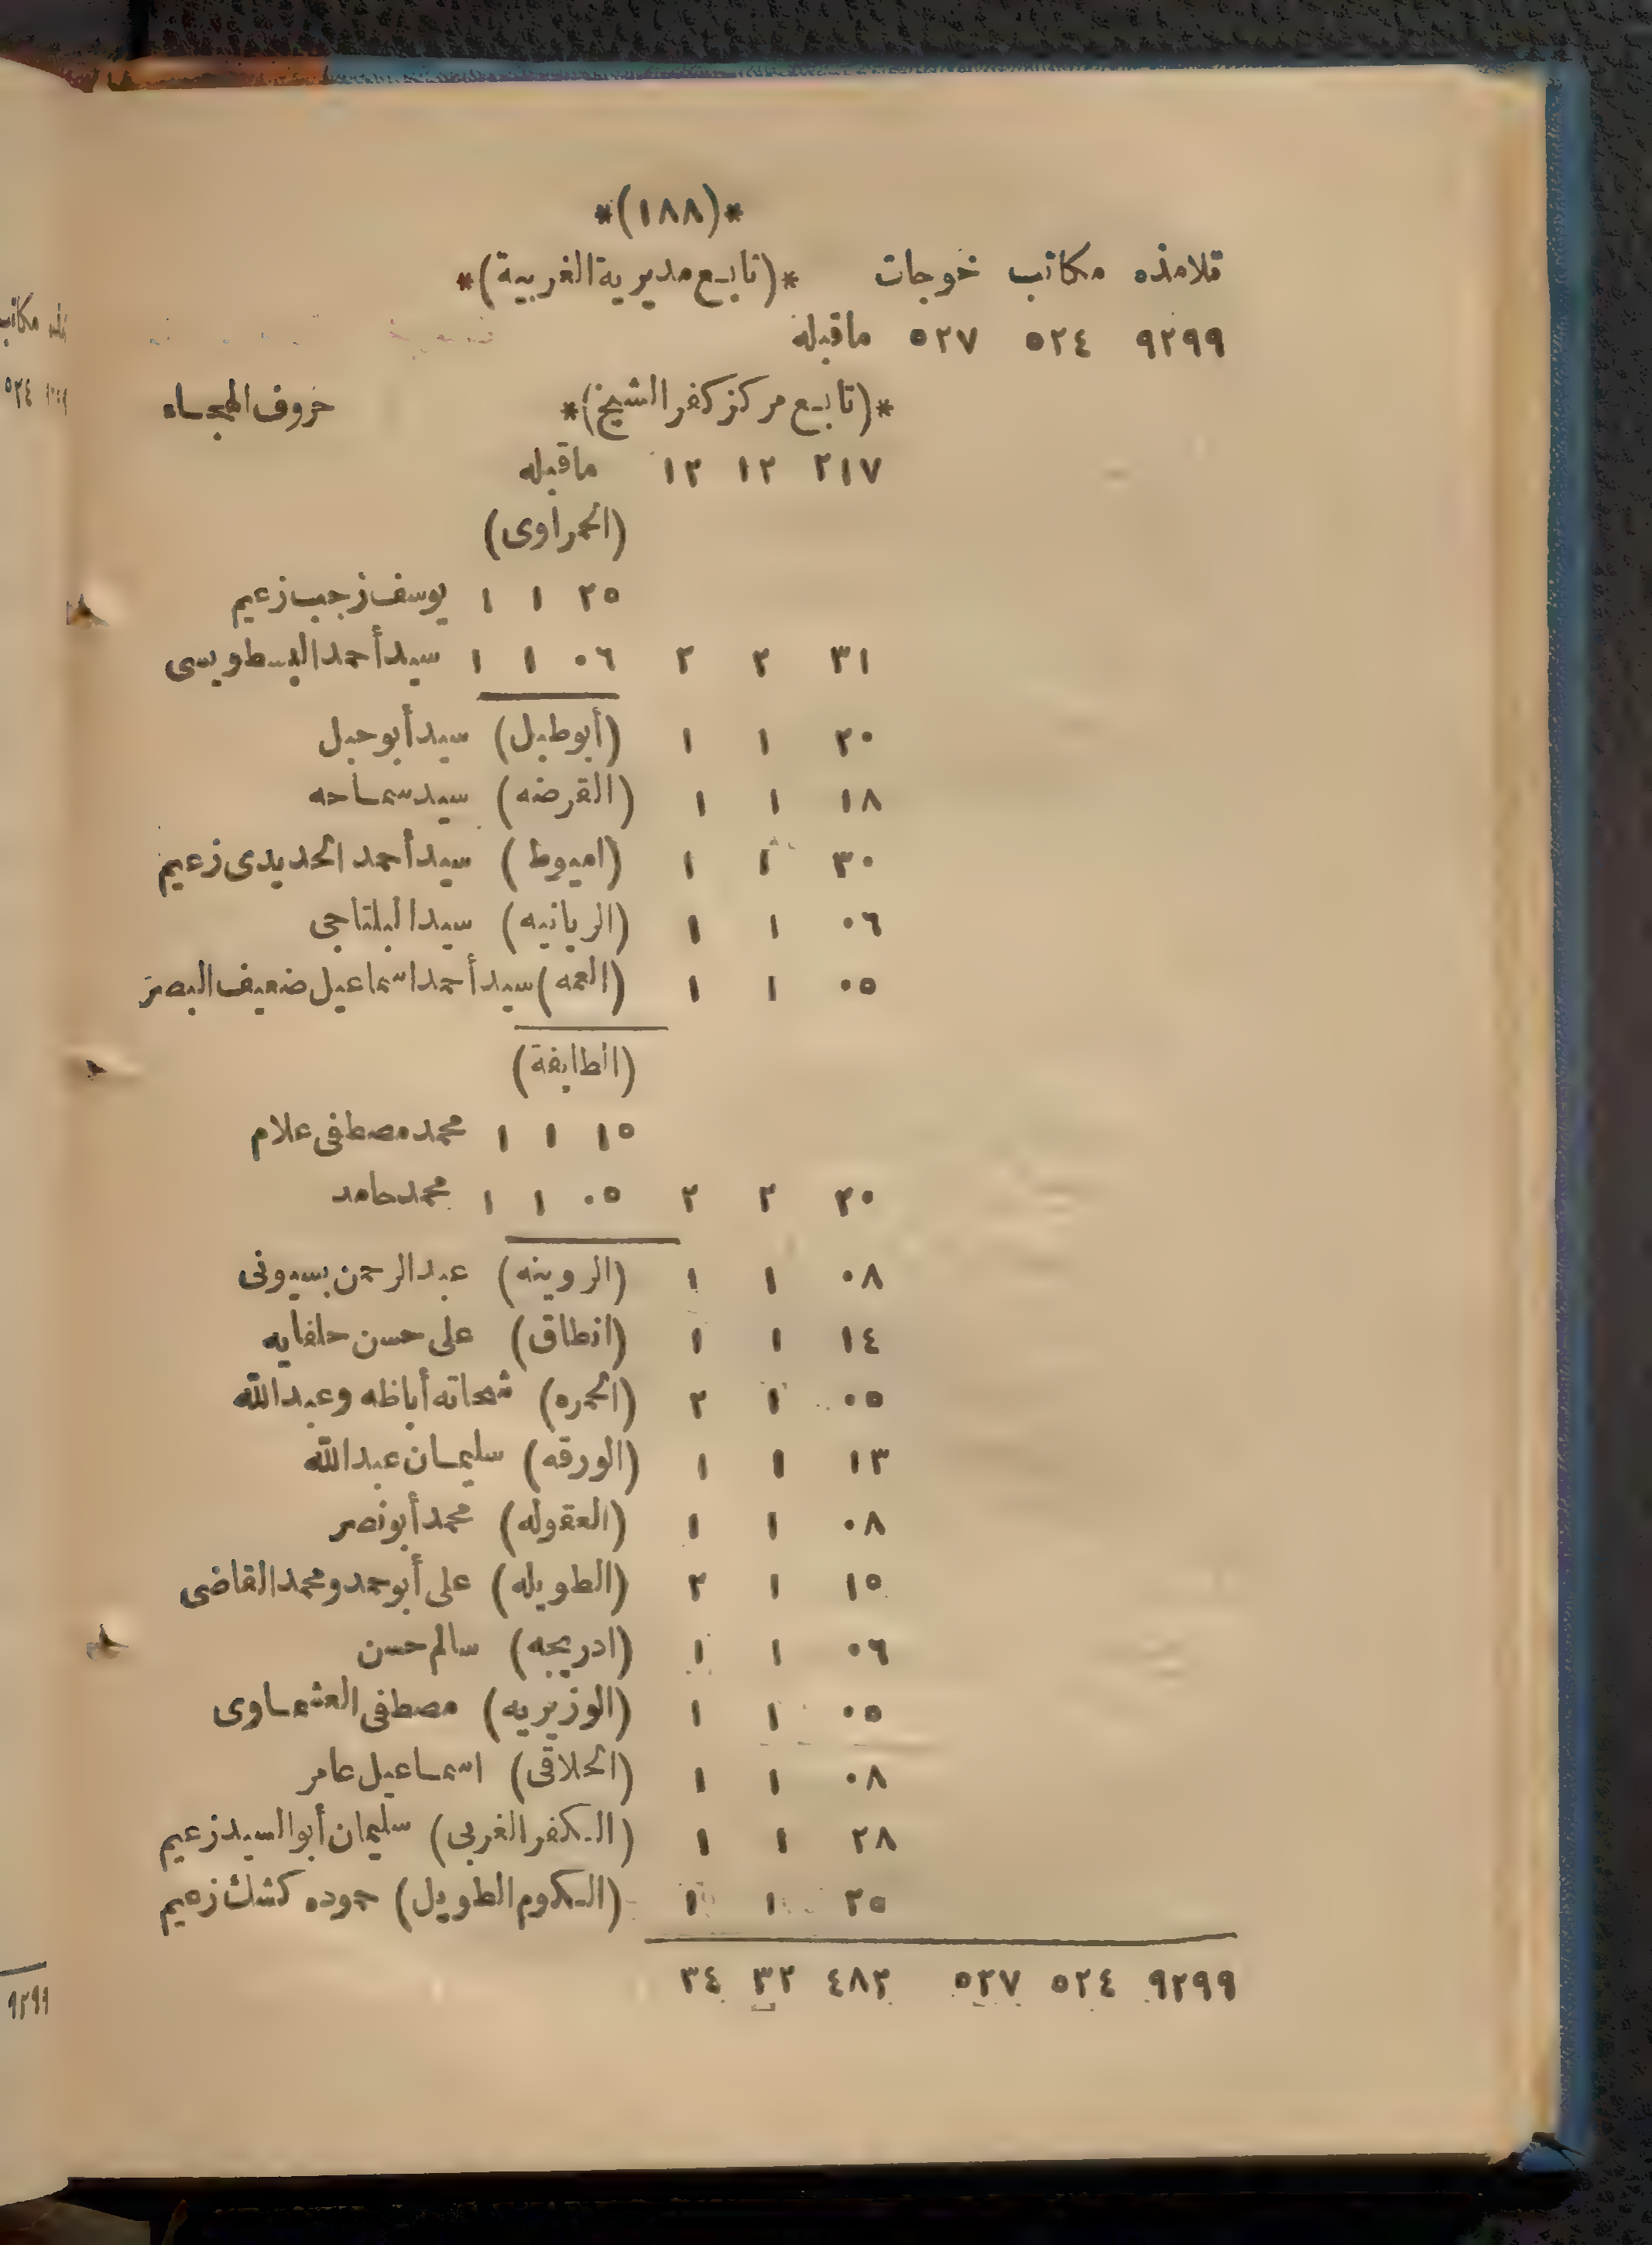 *(١٨٨)*
تلامذه مكاتب خوجات *(تابع مديرية الغربية)*
٩٢٩٩ ٥٢٤ ٥٢٧ ماقبله
*(تابع مركز كفر الشيخ)* حروف الهجاء
٢١٧ ١٢ ١٣ ماقبله
(الحمراوى)
٢٥ ١ ١ يوسف رجب زعيم
٣١ ٢ ٢ ٠٦ ١ ١ سيد أحمد البسطويسى
٢٠ ١ ١ (أبوطبل) سيد أبوحبل
١٨ ١ ١ (القرضه) سيد سماحه
٣٠ ١ ١ (اميوط) سيد أحمد الحديدى زعيم
٠٦ ١ ١ (الربانيه) سيد البلتاجى
٠٥ ١ ١ (العمه) سيد أحمد اسماعيل ضعيف البصر
(الطايفة)
١٥ ١ ١ محمد مصطفى علام
٢٠ ٢ ٢ ٠٥ ١ ١ محمد حامد
٠٨ ١ ١ (الروينه) عبد الرحمن بسيونى
١٤ ١ ١ (انطاق) على حسن حلفايه
٠٥ ١ ٢ (الحمره) شحاته أباظه وعبد الله
١٣ ١ ١ (الورقه) سليمان عبد الله
٠٨ ١ ١ (العقوله) محمد أبونصر
١٥ ١ ٢ (الطويله) على أبوحمد ومحمد القاضى
٠٦ ١ ١ (ادريجه) سالم حسن
٠٥ ١ ١ (الوزيريه) مصطفى العشماوى
٠٨ ١ ١ (الحلاقى) اسماعيل عامر
٢٨ ١ ١ (الكفر الغربى) سليمان أبوالسيد زعيم
٢٥ ١ ١ (الكوم الطويل) حموده كشك زعيم
٩٢٩٩ ٥٢٤ ٥٢٧ ٤٨٢ ٣٢ ٣٤